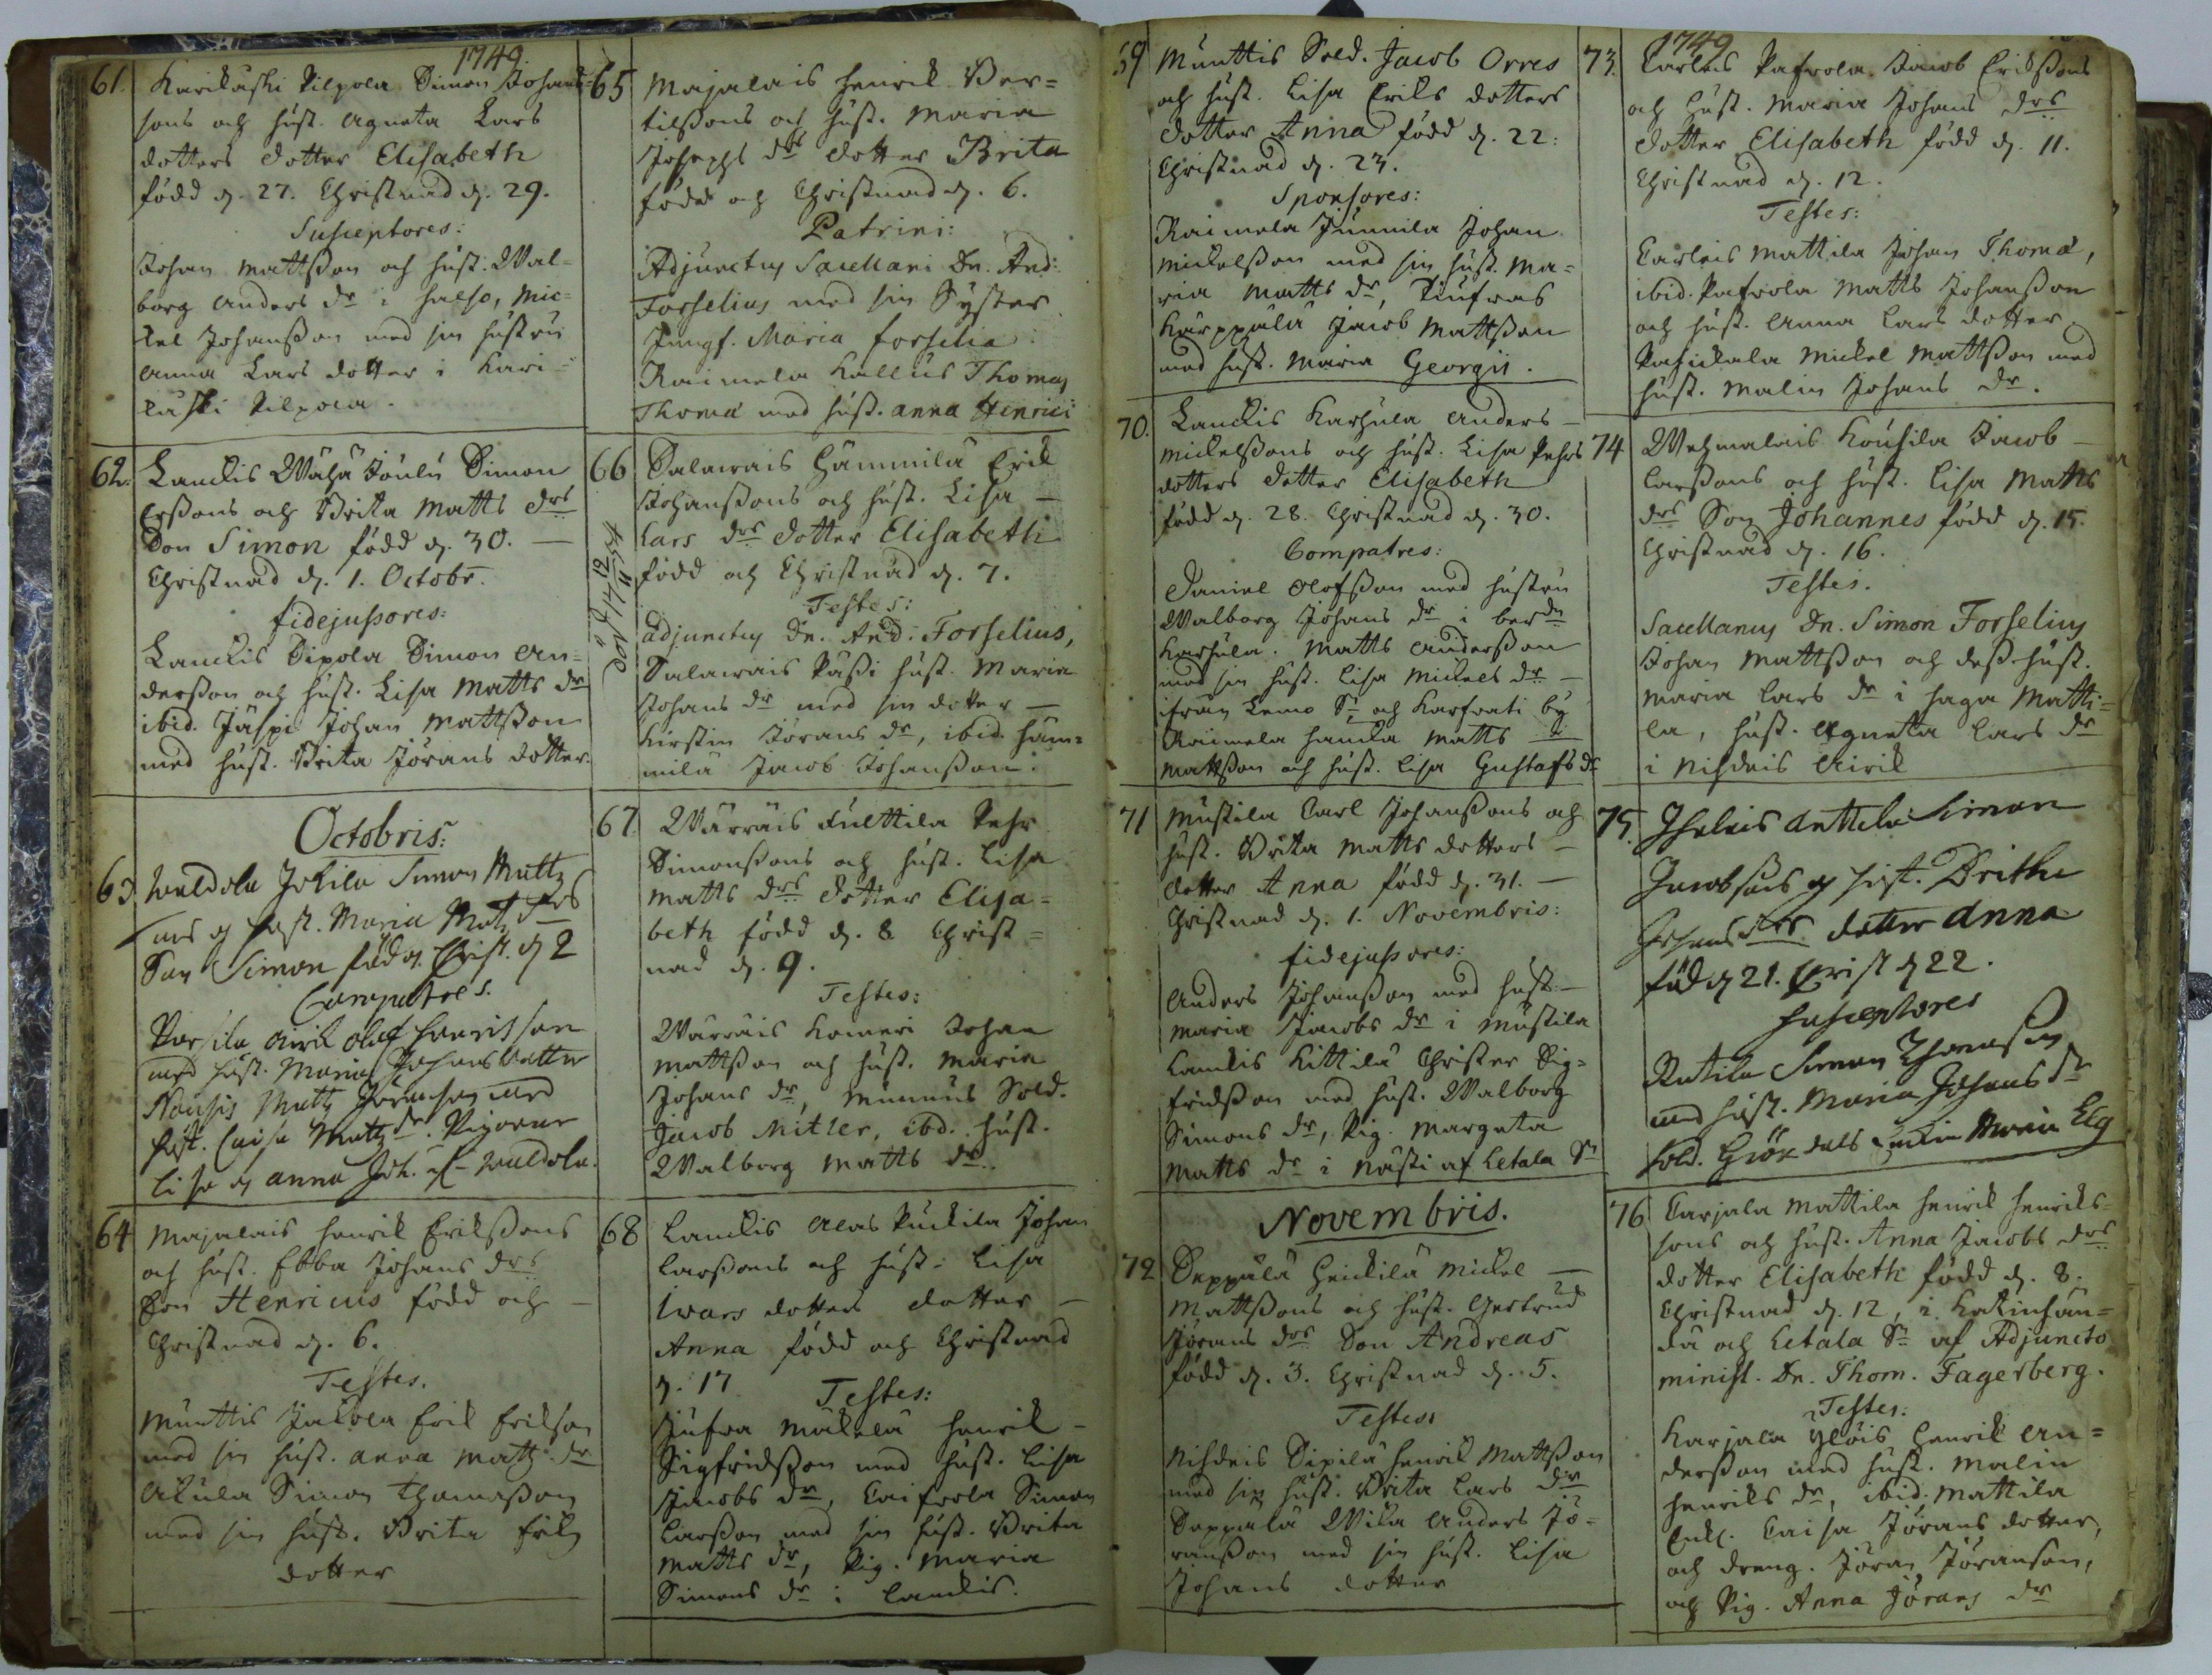 1749.
61. Karikaski Pilpola Simon Johans
sons och hust. Agneta Lars
dotters dotter Elisabeth
född d. 27. Christnad d. 29.
Susceptores:
Johan Mattsson och hust. Wal=
borg Anders dr i Halso, Mic=
kel Johansson med sin hustru
Anna Lars dotter i Kari=
kaski Pilpola.
62. Lauckis Wähä Jouhi Simon
Ersons och Brita Matts drs
Son Simon född d. 30.
Christnad d. 1. Octobr.
fidejussores:
Lauckis Sipola Simon An=
dersson och hust. Lisa Matts dr
ibid. Jäspi Johan Mattsson
med hust. Brita Jörans dotter.
Octobris:
63. Waldola Jokila Simon Matts
sons och hust. Maria Mats drs
Son Simon föd och Christ. d 2
Compatres.
Olof Henrisson
med hust. Maria Johans dotter
Nousis Matts Jöransson med
hust. Caisa Matts dr. Pigorne
Lisa och Anna Joh. dr Waldola.
64 Majalais Henrik Erikssons
och hust. Ebba Johans drs
Son Henricus född och
Christnad d. 6.
Testes.
Munttis Jakola Erik Erikson
med sin hust. Anna Matts dr
Akula Simon Thomasson
med sin hust. Brita Eriks
dotter
65 Majalais Henrik Ber=
tilssons och hust. Maria
Josephs drs dotter Brita
född och Christnad d. 6.
Patrini:
Adjunctus Sacellani Dn. And:
Forselius med sin Syster
Jungf. Maria Forselia
Raimela Kallus Thomas
Thomæ med hust. Anna Henrici
66 Salawais Hämmilä Erik
Johanssons och hust. Lisa
Lars drs dotter Elisabeth
född och Christnad d. 7.
Testes:
adjunctus Dn. And. Forselius,
Salawais Pässi hust. Maria
Johans dr med sin dotter
Kirstin Jörans dr, ibid. Häm=
milä Jacob Johansson.
67 Wärräis Pulttila Pehr
Simonssons och hust. Lisa
Matts drs dotter Elisa=
beth född d. 8 Christ=
nad d. 9.
Testes:
Wärräis Komeri Johan
Mattsson och hust. Maria
Johans dr, Mimäis Sold.
Jacob Mitler, ibd. hust.
Walborg Matts dr.
68 Lauckis Alas Puckila Johan
Larssons och hust. Lisa
Iwars dotters dotter
Anna född och Christnad
d. 17
Testes:
Jufwa Mäkelä Henrik
Sigfridsson med hust. Lisa
Jacobs dr, Simon
Larsson med sin hust. Brita
Matts dr, Pig. Maria
Simons dr i Lauckis.
69 Munttis Sold. Jacob Orres
och hust. Lisa Eriks dotters
dotter Anna född d. 22:
Christnad d. 23.
Sponsores:
Raimela Junnila Johan
Mickelsson med sin hust. Ma=
ria Matts dr,
Kärppälä Jacob Mattsson
med hust. Maria Georgii.
70. Lauckis Karhula Anders
Mickelssons och hust. Lisa Pehrs
dotters dotter Elisabeth
född d. 28. Christnad d. 30.
Compatres:
Daniel Olofsson med hustru
Walborg Johans dr i berde
Karhula. Matts Andersson
med sin hust. Lisa Mickels dr
ifrån Lemo Sn och by
Raimela Hancka Matts
Mattsson och hust. Lisa Gustafs dr
71 Mustila Carl Johanssons och
hust. Brita Matts dotters
dotter Anna född d. 31.
Christnad d. 1. Novembris:
fidejussores:
Anders Johansson med hust.
Maria Jacobs dr i Mustila
Lauckis Kittilä Christer Sig=
fridsson med hust. Walborg
Simons dr, Pig. Margeta
Matts dr i Nästi af Letala Sn
Novembris.
72 Seppälä Heickilä Mickel
Mattssons och hust. Gertrud
Jörans drs Son Andreas
född d. 3. Christnad d. 5.
Testes:
Nihdeis Sipilä Henrik Mattsson
med sin hust. Brita Lars dr
Seppälä Wika Anders Jö=
ransson med sin hust. Lisa
Johans dotter
1749
73. Carleis Pafwola Jacob Erikssons
och hust. Maria Johans drs
dotter Elisabeth född d. 11.
Christnad d. 12.
Testes:
Carleis Mattila Johan Thomæ,
ibid. Pafwola Matts Johansson
och hust. Anna Lars dotter.
Mickel Mattsson med
hust. Malin Johans dr.
74 Wehmalais Kousila Jacob
Larssons och hust. Lisa Matts
drs Son Johannes född d. 15.
Christnad d. 16.
Testes.
Sacellanus Dn. Simon Forselius
Johan Mattsson och dess hust.
Maria Lars dr i Haga Matti=
la, hust. Agneta Lars dr
i Nihdeis Airik
75. Ihalais Anttila Simon
Jacobsons och hust. Britha
Johans drs dotter Anna
föd d 21. Christ d 22.
Susceptores
Rutila Simon Thomasson
med hust. Maria Johans dr
sold. Maria Elg
76 Carjala Mattila Henrik Henriks=
sons och hust. Anna Jacobs drs
dotter Elisabeth född d. 8.
Christnad d. 12, i Katinhän=
dä och Letala Sn af Adjuncto
minist. Dn. Thom. Fagerberg.
Testes:
Karjala Yläis Henrik An=
dersson med hust. Malin
Henriks dr, ibid. Mattila
Enk. Caisa Jörans dotter,
och dreng. Jöran Jöransson,
och Pig. Anna Jörans dr